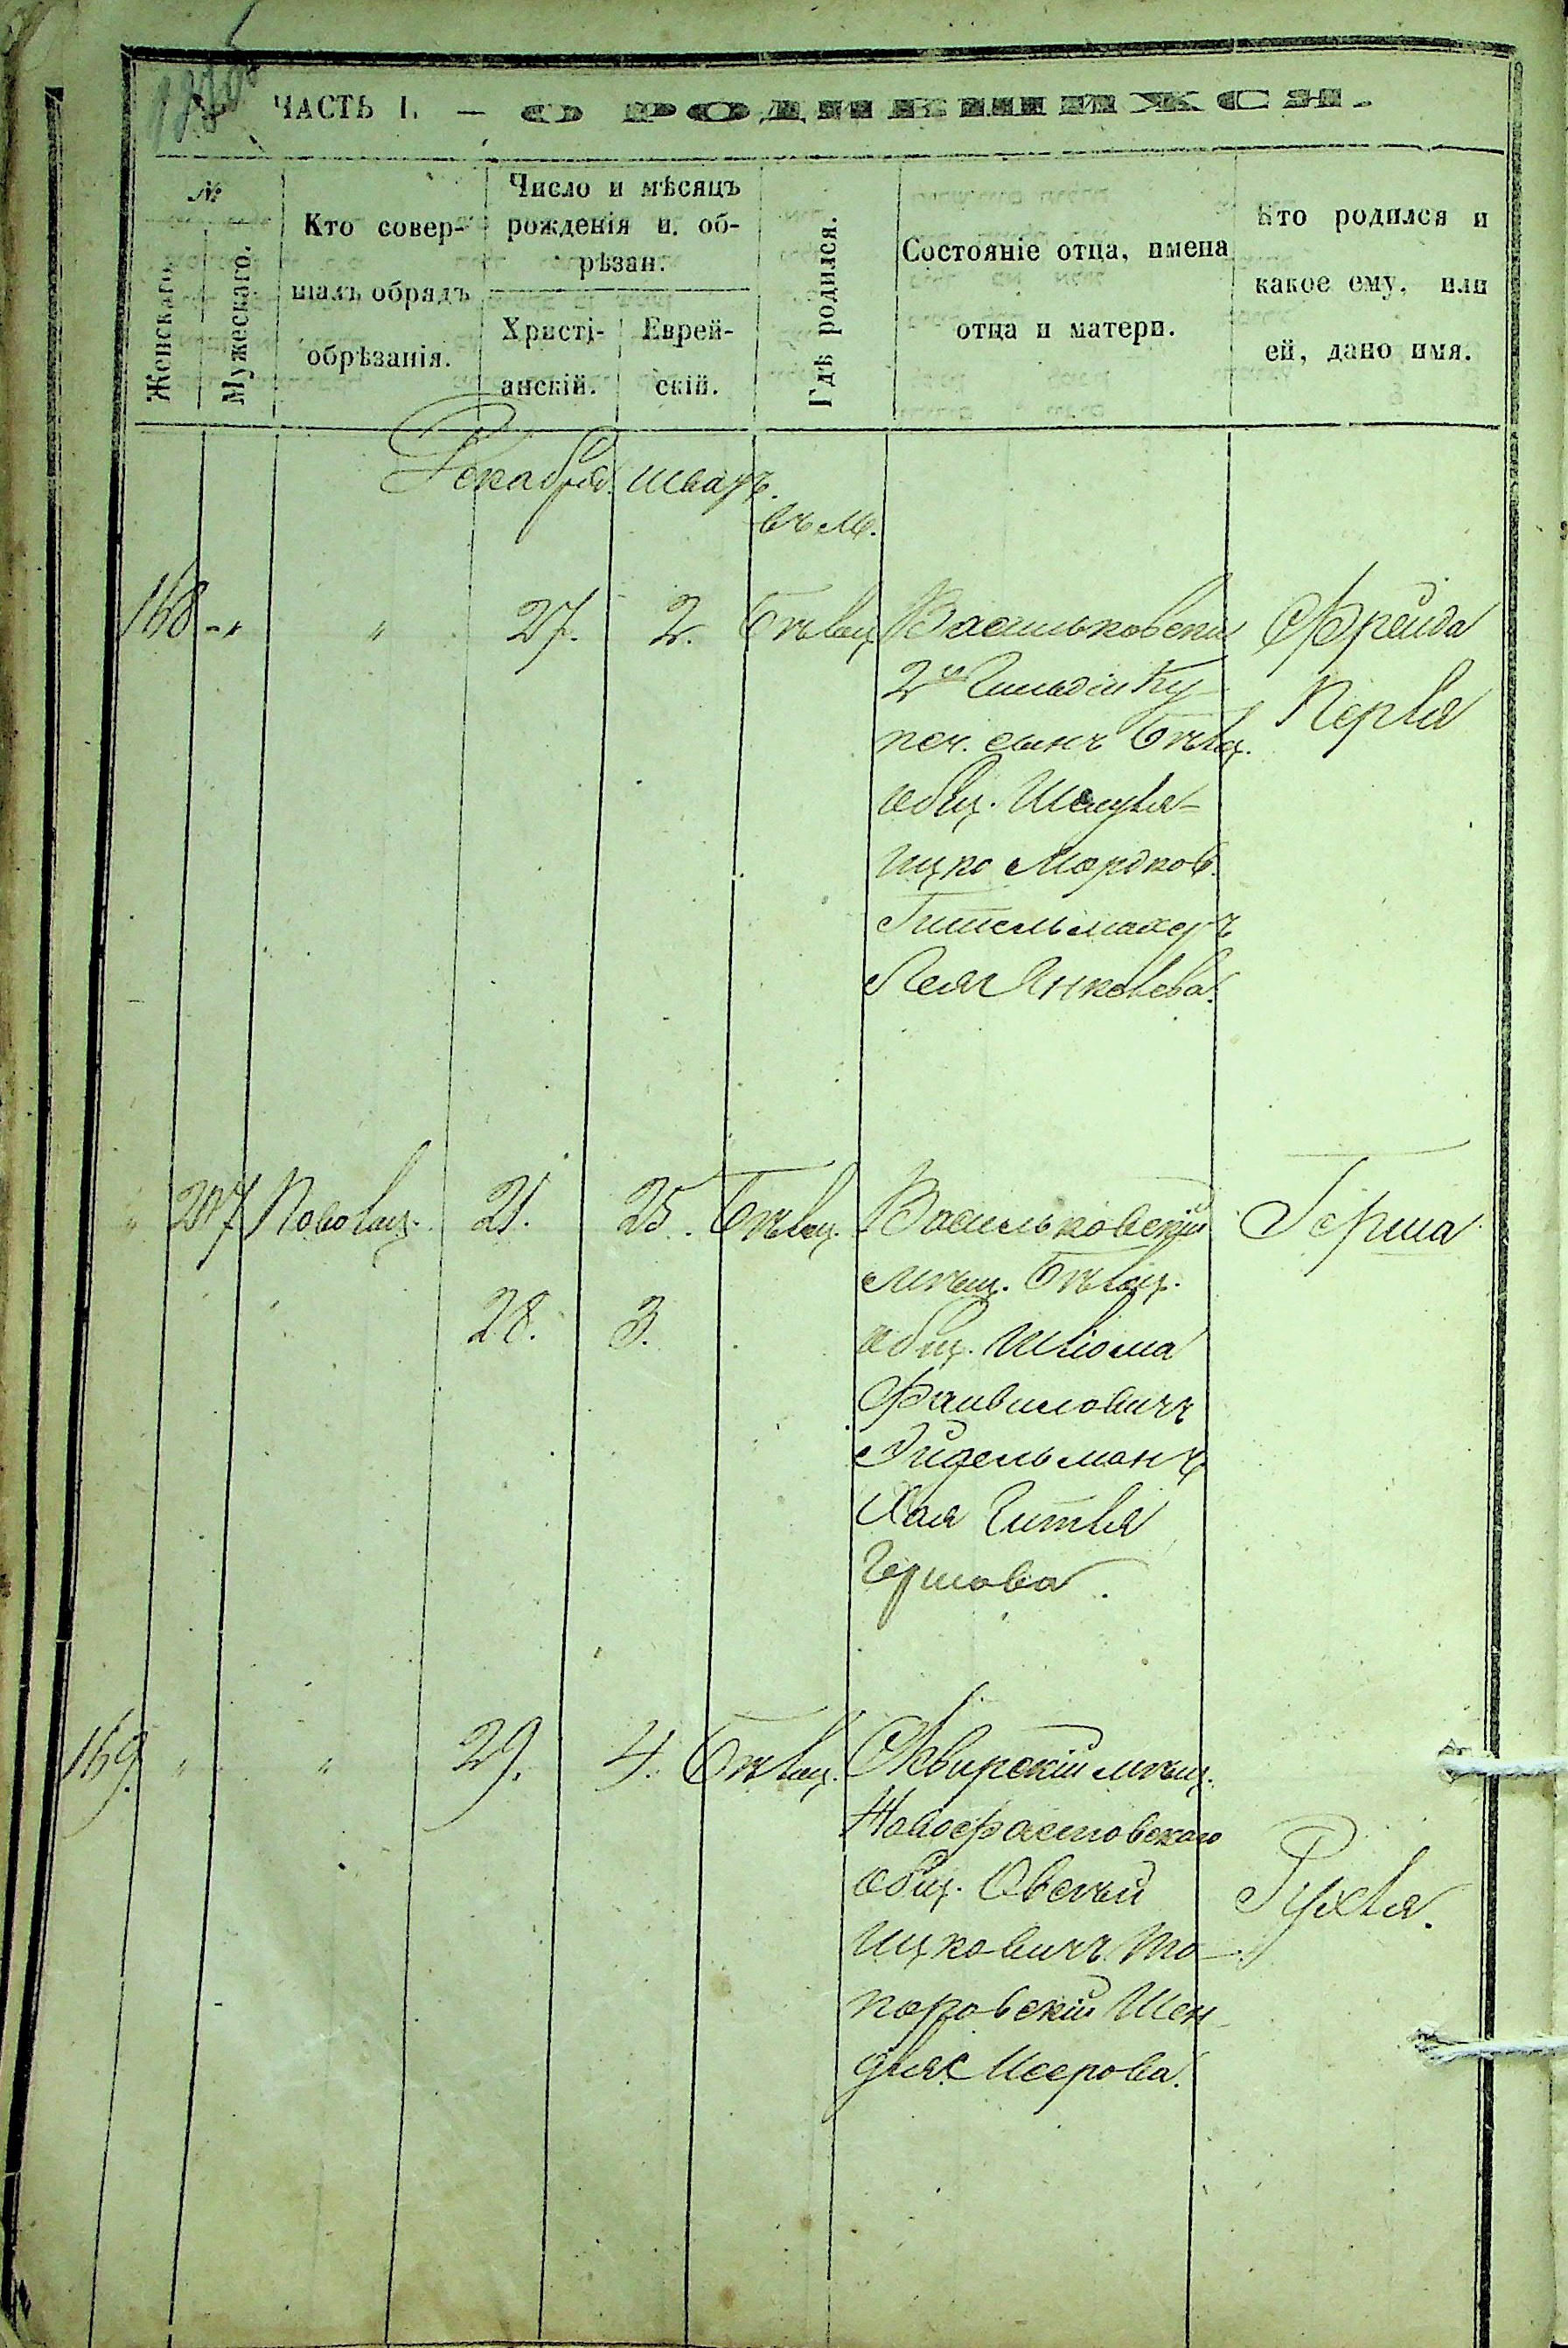 ЧАСТЬ I. — О РОДИВШИХСЯ.
№
Женскаго.
Мужескаго.
Кто совер-
шалъ обрядъ
обрѣзанія.
Число и мѣсяцъ
рожденія и об-
рѣзан.
Христі-
анскій.
Еврей-
скій.
Гдѣ родился.
Состояніе отца, имена
отца и матери.
Кто родился и
какое ему, или
ей, дано имя.
Декабря. Шватъ.
въ м.
168 " " 27. 2. Бѣлоц. Васильковскій
2й Гильдіи Ку-
печ. сынъ Бѣлоц.
общ.
Ицко Мордков.
Гительмахеръ
Лея Янкелева.
Фрейда
Перля
" 207 Поволоц. 21. 25. Бѣлоц. Васильковскій
28. 3.
мѣщ. Бѣлоц.
общ. Шлома
Файвишовичъ
Эйдельманъ
Хая Гитля
Гершова.
Герша
169. " " 29. 4. Бѣлоц. Сквирскій мѣщ.
Новофастовскаго
общ. Овсей
Ицковичъ То-
поровскій Шен-
для Меерова.
Рухля.